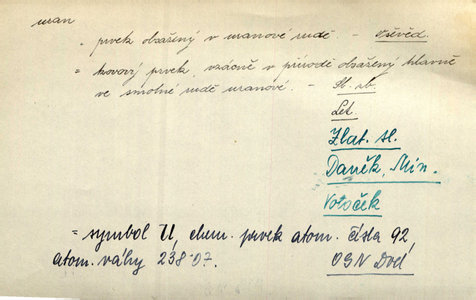 uran
- prvek obsažený v uranové rudě. - Vševěd.
= kovový prvek, vzácně v přírodě obsažený hlavně
ve smolné rudě uranové. - Sl. sb.
Let.
Zlat. sl.
Daněk, Min.
Votoček
= symbol U, chem. prvek atom. čísla 92,
atom. váhy 238·07. OSN Dod